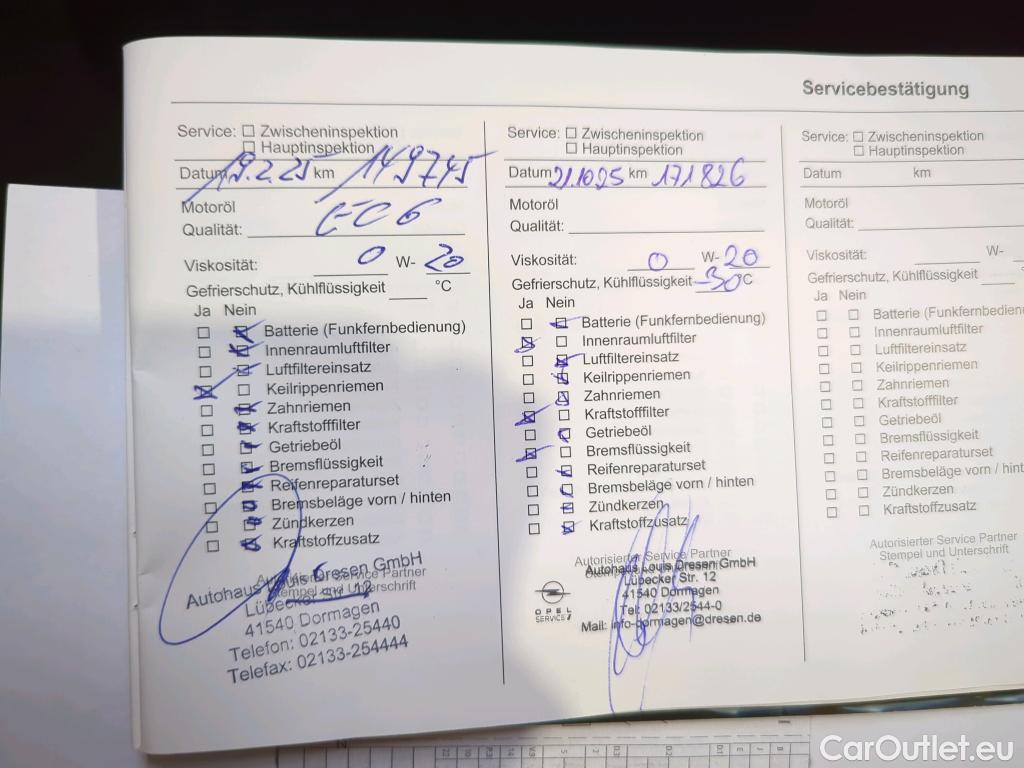 Servicebestätigung
Service: Zwischeninspektion
Hauptinspektion
Datum 19.2.25 km 149745
Motoröl
Qualität:
Viskosität: 0 W- 20
Gefrierschutz, Kühlflüssigkeit °C
Ja Nein
Batterie (Funkfernbedienung)
Innenraumluftfilter
Luftfiltereinsatz
Keilrippenriemen
Zahnriemen
Kraftstofffilter
Getriebeöl
Bremsflüssigkeit
Reifenreparaturset
Bremsbeläge vorn / hinten
Zündkerzen
Kraftstoffzusatz
Autorisierter Service Partner
Stempel und Unterschrift
Autohaus Louis Dresen GmbH
Lübecker Str. 12
41540 Dormagen
Telefon: 02133-25440
Telefax: 02133-254444
Service: Zwischeninspektion
Hauptinspektion
Datum 21.10.25 km 171826
Motoröl
Qualität:
Viskosität: 0 W- 20
Gefrierschutz, Kühlflüssigkeit -30°C
Ja Nein
Batterie (Funkfernbedienung)
Innenraumluftfilter
Luftfiltereinsatz
Keilrippenriemen
Zahnriemen
Kraftstofffilter
Getriebeöl
Bremsflüssigkeit
Reifenreparaturset
Bremsbeläge vorn / hinten
Zündkerzen
Kraftstoffzusatz
Autorisierter Service Partner
Autohaus Louis Dresen GmbH
Lübecker Str. 12
41540 Dormagen
Tel: 02133/2544-0
Mail: info-dormagen@dresen.de
OPEL
SERVICE
Service: Zwischeninspektion
Hauptinspektion
Datum km
Motoröl
Qualität:
Viskosität: W-
Gefrierschutz, Kühlflüssigkeit
Ja Nein
Batterie (Funkfernbedienu
Innenraumluftfilter
Luftfiltereinsatz
Keilrippenriemen
Zahnriemen
Kraftstofffilter
Getriebeöl
Bremsflüssigkeit
Reifenreparaturset
Bremsbeläge vorn / hinten
Zündkerzen
Kraftstoffzusatz
Autorisierter Service Partner
Stempel und Unterschrift
CarOutlet.eu